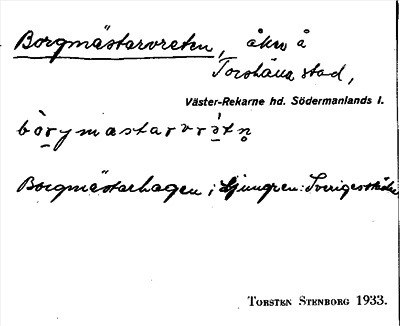 Borgmästarvreten, åker å
Torshälla stad,
Väster-Rekarne hd. Södermanlands l.
bòrymastarvrètn̥
Borgmästarhagen; Ljungren: Sverigesstäder
TORSTEN STENBORG 1933.